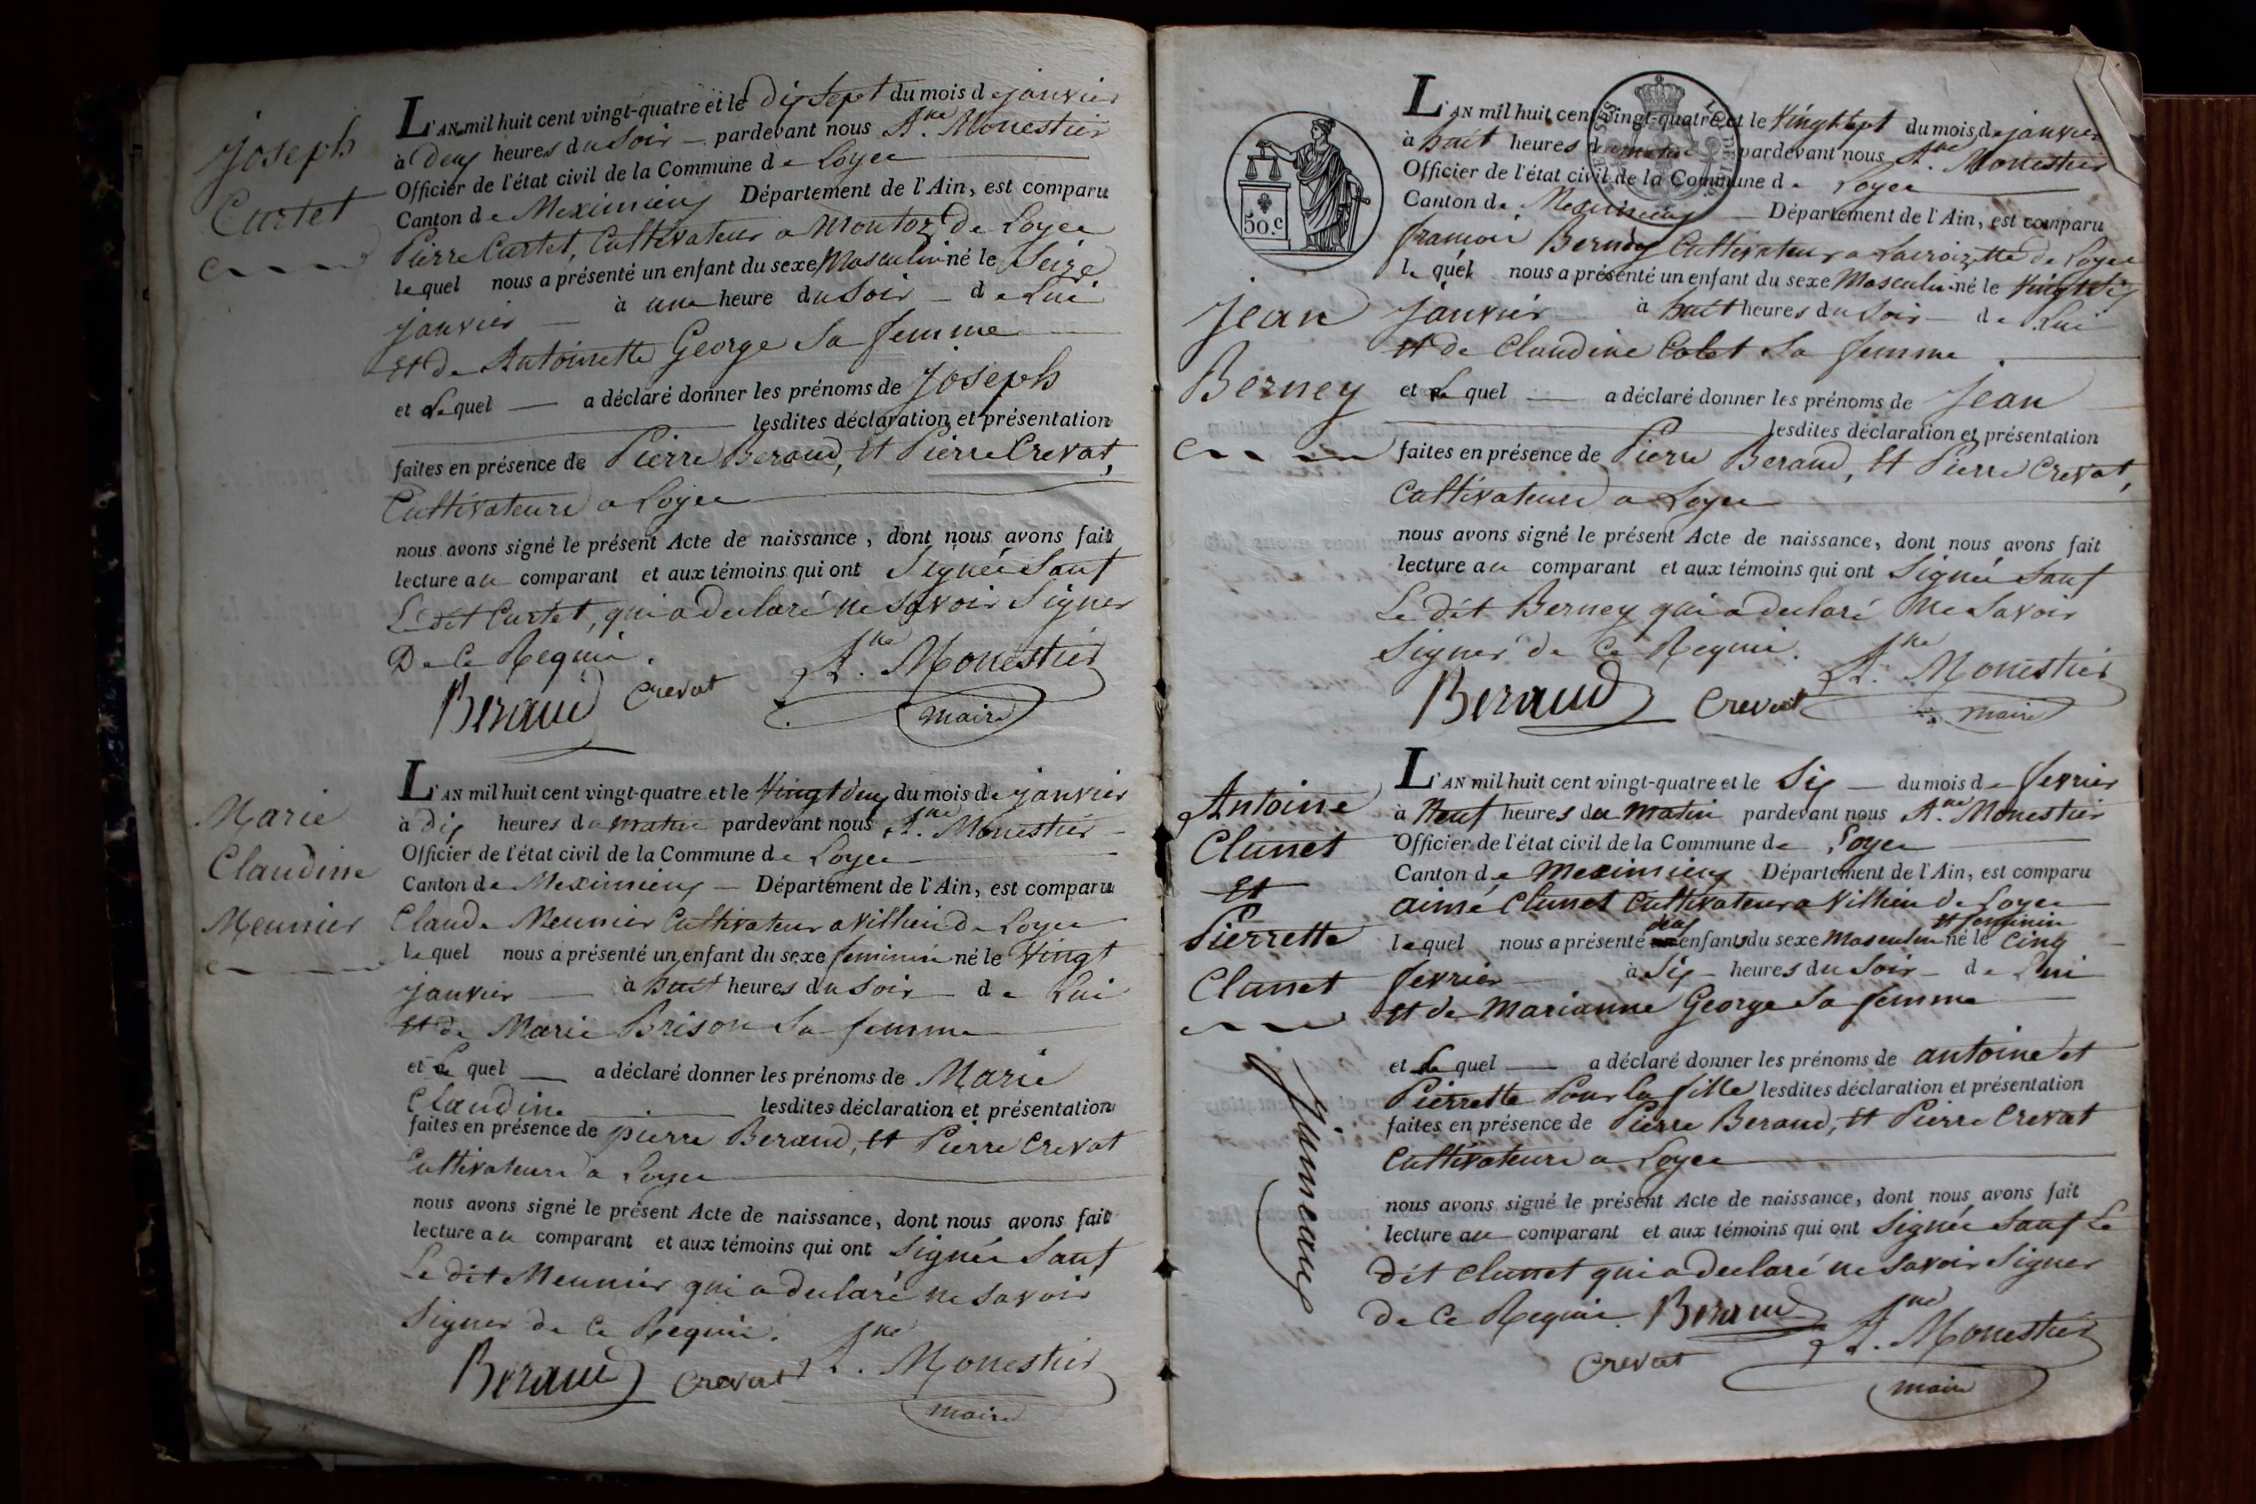 Joseph
Curtet
L'AN mil huit cent vingt-quatre et le dix sept du mois de janvier
à deux heures du Soir pardevant nous A.ne Monestier
Officier de l'état civil de la Commune de Loyee
Canton de Meximieux Département de l'Ain, est comparu
Pierre Curtet, Cultivateur a Montoz de Loyee
lequel nous a présenté un enfant du sexe Masculin né le Seize
janvier à une heure du Soir de Lui
et de Antoinette George Sa femme
et Le quel a déclaré donner les prénoms de Joseph
lesdites déclaration et présentation
faites en présence de Pierre Beraud, et Pierre Crevat,
Cultivateurs a Loyee
nous avons signé le présent Acte de naissance, dont nous avons fait
lecture au comparant et aux témoins qui ont Signés Sauf
Le dit Curtet, qui a declaré ne Savoir Signer
De Ce Requis.
A.ne Monestier
Beraud Crevat
maire
Marie
Claudine
Meunier
L'AN mil huit cent vingt-quatre et le Vingt deux du mois de janvier
à dix heures du matin pardevant nous A.ne Monestier
Officier de l'état civil de la Commune de Loyee
Canton de Meximieux Département de l'Ain, est comparu
Claude Meunier Cultivateur a Villieu de Loyee
lequel nous a présenté un enfant du sexe feminin né le Vingt
janvier à huit heures du Soir de Lui
et de Marie Brison Sa femme
et Le quel a déclaré donner les prénoms de Marie
Claudine lesdites déclaration et présentation
faites en présence de pierre Beraud, et Pierre Crevat
Cultivateurs a Loyee
nous avons signé le présent Acte de naissance, dont nous avons fait
lecture au comparant et aux témoins qui ont Signés Sauf
Le dit Meunier qui a declaré ne Savoir
Signer de Ce Requis.
A.ne Monestier
Beraud Crevat
maire
50.c
Jean
Berney
L'AN mil huit cent vingt-quatre et le Vingt sept du mois de janvier
à huit heures du matin pardevant nous A.ne Monestier
Officier de l'état civil de la Commune de Loyee
Canton de Meximieux Département de l'Ain, est comparu
francois Berney Cultivateur a Lacroizette de Loyee
lequel nous a présenté un enfant du sexe Masculin né le Vingt Six
Janvier à huit heures du Soir de Lui
et de Claudine Colet Sa femme
et Le quel a déclaré donner les prénoms de Jean
lesdites déclaration et présentation
faites en présence de Pierre Beraud, et Pierre Crevat,
Cultivateurs a Loyee
nous avons signé le présent Acte de naissance, dont nous avons fait
lecture au comparant et aux témoins qui ont Signés Sauf
Le dit Berney qui a declaré Ne Savoir
Signer de Ce Requis.
A.ne Monestier
Beraud Crevat
maire
Antoine
Clunet
Et
Pierrette
Clunet
jumeaux
L'AN mil huit cent vingt-quatre et le Six du mois de fevrier
à Neuf heures du matin pardevant nous A.ne Monestier
Officier de l'état civil de la Commune de Loyee
Canton de meximieux Département de l'Ain, est comparu
aimé Clunet Cultivateur a Villieu de Loyee
deux et feminin
lequel nous a présenté enfants du sexe Masculin né le Cinq
fevrier à Six heures du Soir de Lui
et de Marianne George Sa femme
et Le quel a déclaré donner les prénoms de antoine et
Pierrette Pour la fille lesdites déclaration et présentation
faites en présence de Pierre Beraud, et Pierre Crevat
Cultivateurs a Loyee
nous avons signé le présent Acte de naissance, dont nous avons fait
lecture au comparant et aux témoins qui ont Signés Sauf Le
dit Clunet qui a declaré ne Savoir Signer
de Ce Requis. Beraud A.ne Monestier
Crevat
maire